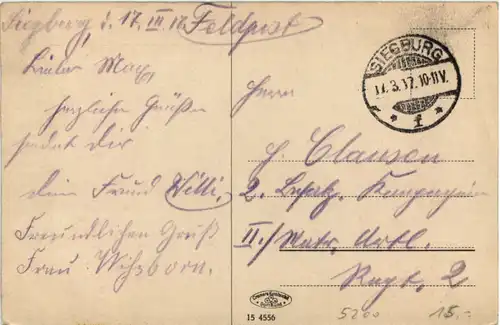 Siegburg, d. 17. III. 17. Feldpost
Lieber Max,
herzliche Grüße
sendet Dir
dein Freund Willi.
Freundlichen Gruß
Frau
SIEGBURG
17.3.17.10-11V.
* f *
Herrn
H. Clausen
2. Kompagnie
II./Matr. Artl.
Regt. 2
15 4556
5200
15.-